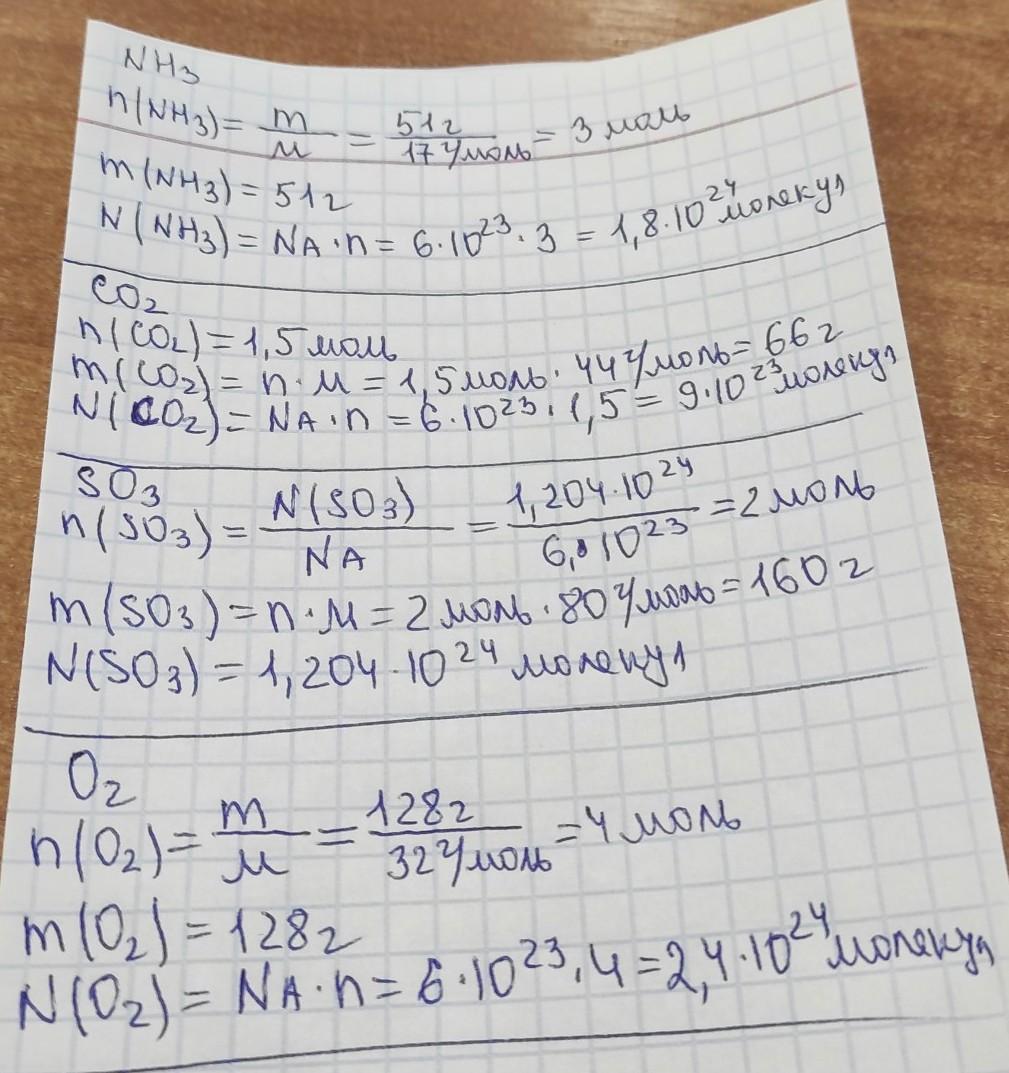 NH3
n(NH3) = m/M = 51г/17г/моль = 3 моль
m(NH3) = 51г
N(NH3) = NA·n = 6·10²³·3 = 1,8·10²⁴ молекул
CO2
n(CO2) = 1,5 моль
m(CO2) = n·M = 1,5 моль·44г/моль = 66г
N(CO2) = NA·n = 6·10²³·1,5 = 9·10²³ молекул
SO3
n(SO3) = N(SO3)/NA = 1,204·10²⁴/6,·10²³ = 2 моль
m(SO3) = n·M = 2 моль·80г/моль = 160г
N(SO3) = 1,204·10²⁴ молекул
O2
n(O2) = m/M = 128г/32г/моль = 4 моль
m(O2) = 128г
N(O2) = NA·n = 6·10²³·4 = 2,4·10²⁴ молекул